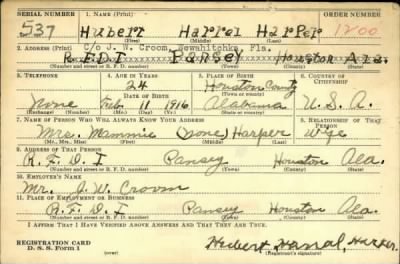 SERIAL NUMBER 1. NAME (Print) ORDER NUMBER
537 Hubert Harrel Harper 1200
(First) (Middle) (Last)
2. ADDRESS (Print) c/o J. W. Croom, Wewahitchka, Fla.
R.F.D. I Pansey Houston Ala.
(Number and street or R. F. D. number) (Town) (County) (State)
3. TELEPHONE 4. AGE IN YEARS 5. PLACE OF BIRTH 6. COUNTRY OF CITIZENSHIP
24 Houston County
DATE OF BIRTH (Town or county)
None Feb. 11 1916 Alabama U.S.A.
(Exchange) (No.) (Mo.) (Day) (Yr.) (State or country)
7. NAME OF PERSON WHO WILL ALWAYS KNOW YOUR ADDRESS 8. RELATIONSHIP OF THAT PERSON
Mrs. Mammie (none) Harper Wife
(Mr., Mrs., Miss) (First) (Middle) (Last)
9. ADDRESS OF THAT PERSON
R.F.D. I Pansey Houston Ala.
(Number and street or R. F. D. number) (Town) (County) (State)
10. EMPLOYER'S NAME
Mr. J. W. Croom
11. PLACE OF EMPLOYMENT OR BUSINESS
R.F.D. I Pansey Houston Ala.
(Number and street or R. F. D. number) (Town) (County) (State)
I AFFIRM THAT I HAVE VERIFIED ABOVE ANSWERS AND THAT THEY ARE TRUE.
REGISTRATION CARD
D. S. S. Form 1 (over) Hubert Harral, Harper
(Registrant's signature)